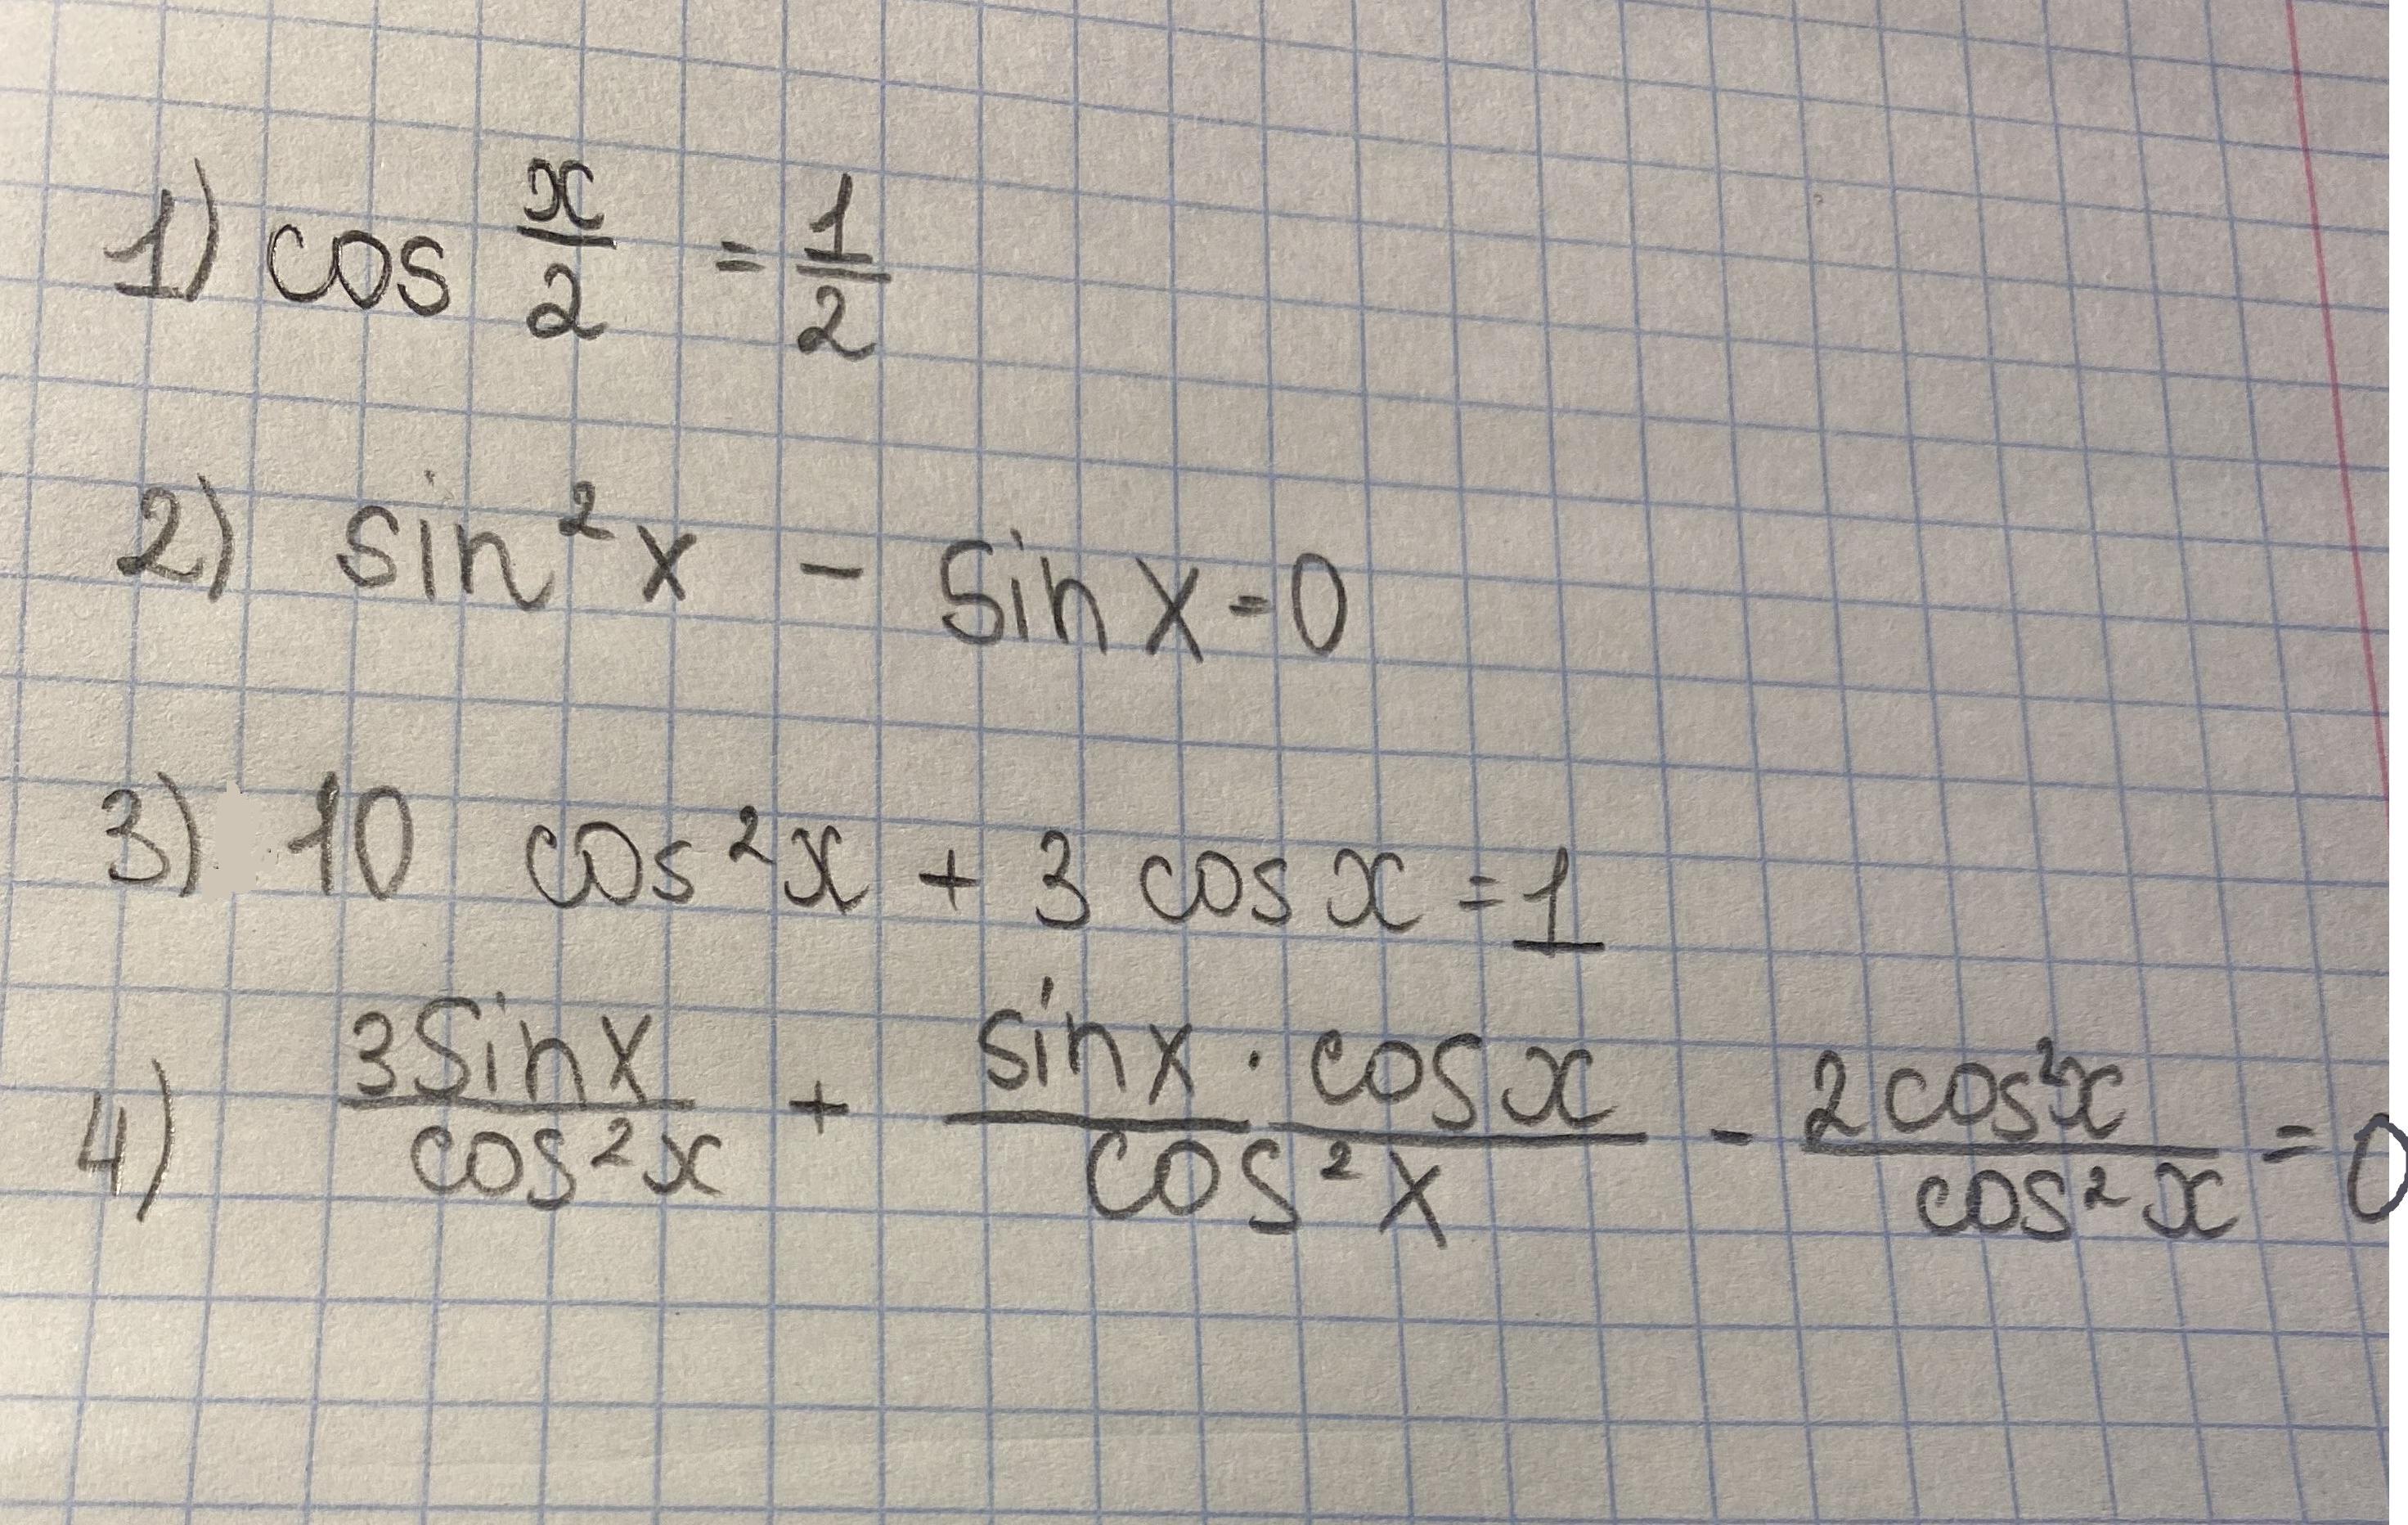 1) cos x/2 = 1/2
2) sin²x - sin x = 0
3) 10 cos²x + 3 cos x = 1
4) 3sin x/cos²x + sin x · cos x/cos²x - 2cos²x/cos²x = 0